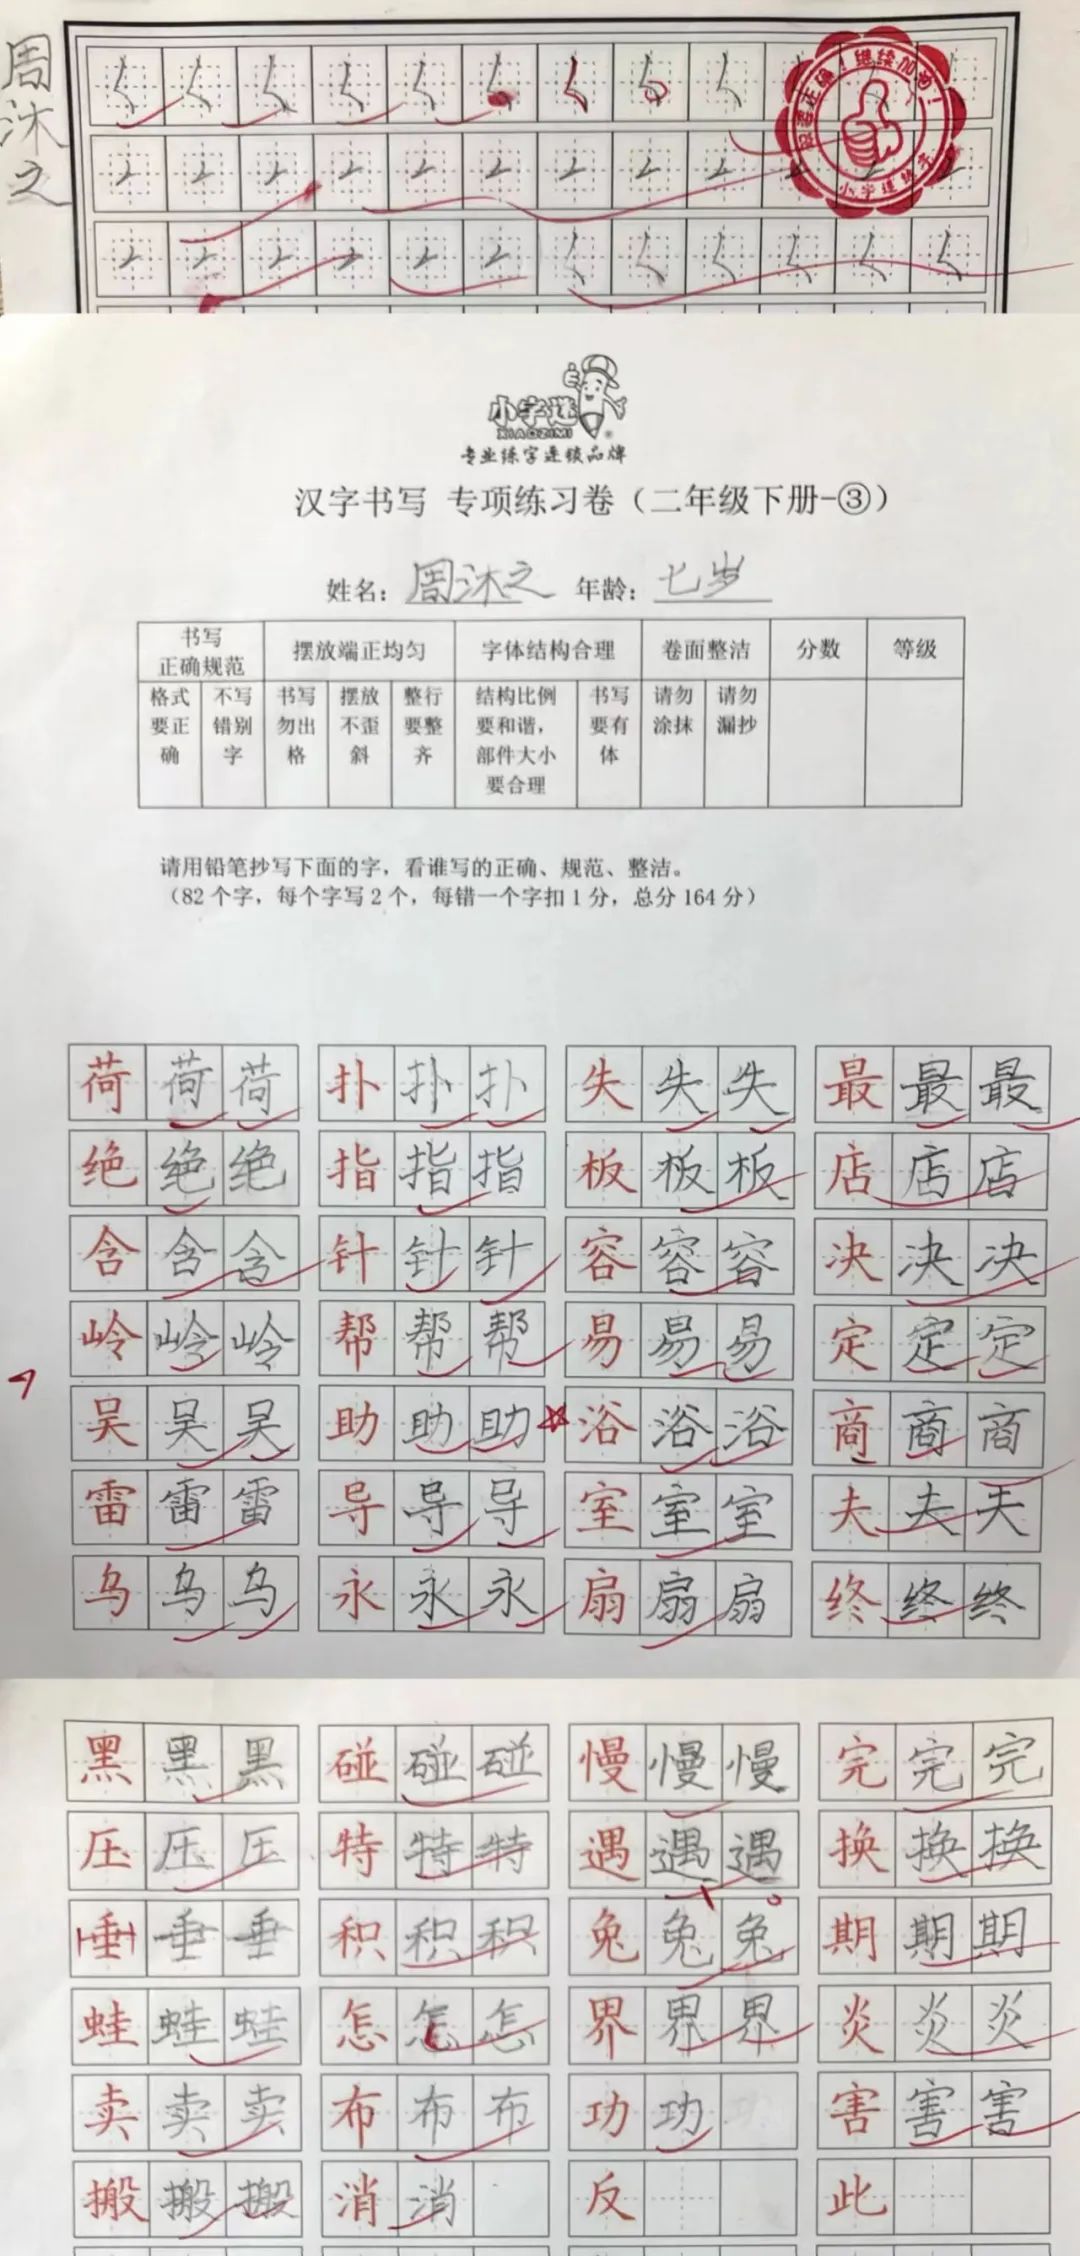 周沐之
继续加油！
小字迷练字
小字迷
XIAOZIMI
专业练字连锁品牌
汉字书写 专项练习卷（二年级下册-③）
姓名：周沐之 年龄：七岁
书写正确规范 摆放端正均匀 字体结构合理 卷面整洁 分数 等级
格式要正确 不写错别字 书写勿出格 摆放不歪斜 整行要整齐 结构比例要和谐，部件大小要合理 书写要有体 请勿涂抹 请勿漏抄
请用铅笔抄写下面的字，看谁写的正确、规范、整洁。
（82个字，每个字写2个，每错一个字扣1分，总分164分）
荷荷荷 扑扑扑 失失失 最最最
绝绝绝 指指指 板板板 店店店
含含含 针针针 容容容 决决决
岭岭岭 帮帮帮 易易易 定定定
吴吴吴 助助助 浴浴浴 商商商
雷雷雷 导导导 室室室 夫夫天
乌乌乌 永永永 扇扇扇 终终终
黑黑黑 碰碰碰 慢慢慢 完完完
压压压 特特特 遇遇遇 换换换
垂垂垂 积积积 兔兔兔 期期期
蛙蛙蛙 怎怎怎 界界界 炎炎炎
卖卖卖 布布布 功功 害害害
搬搬搬 消消 反 此